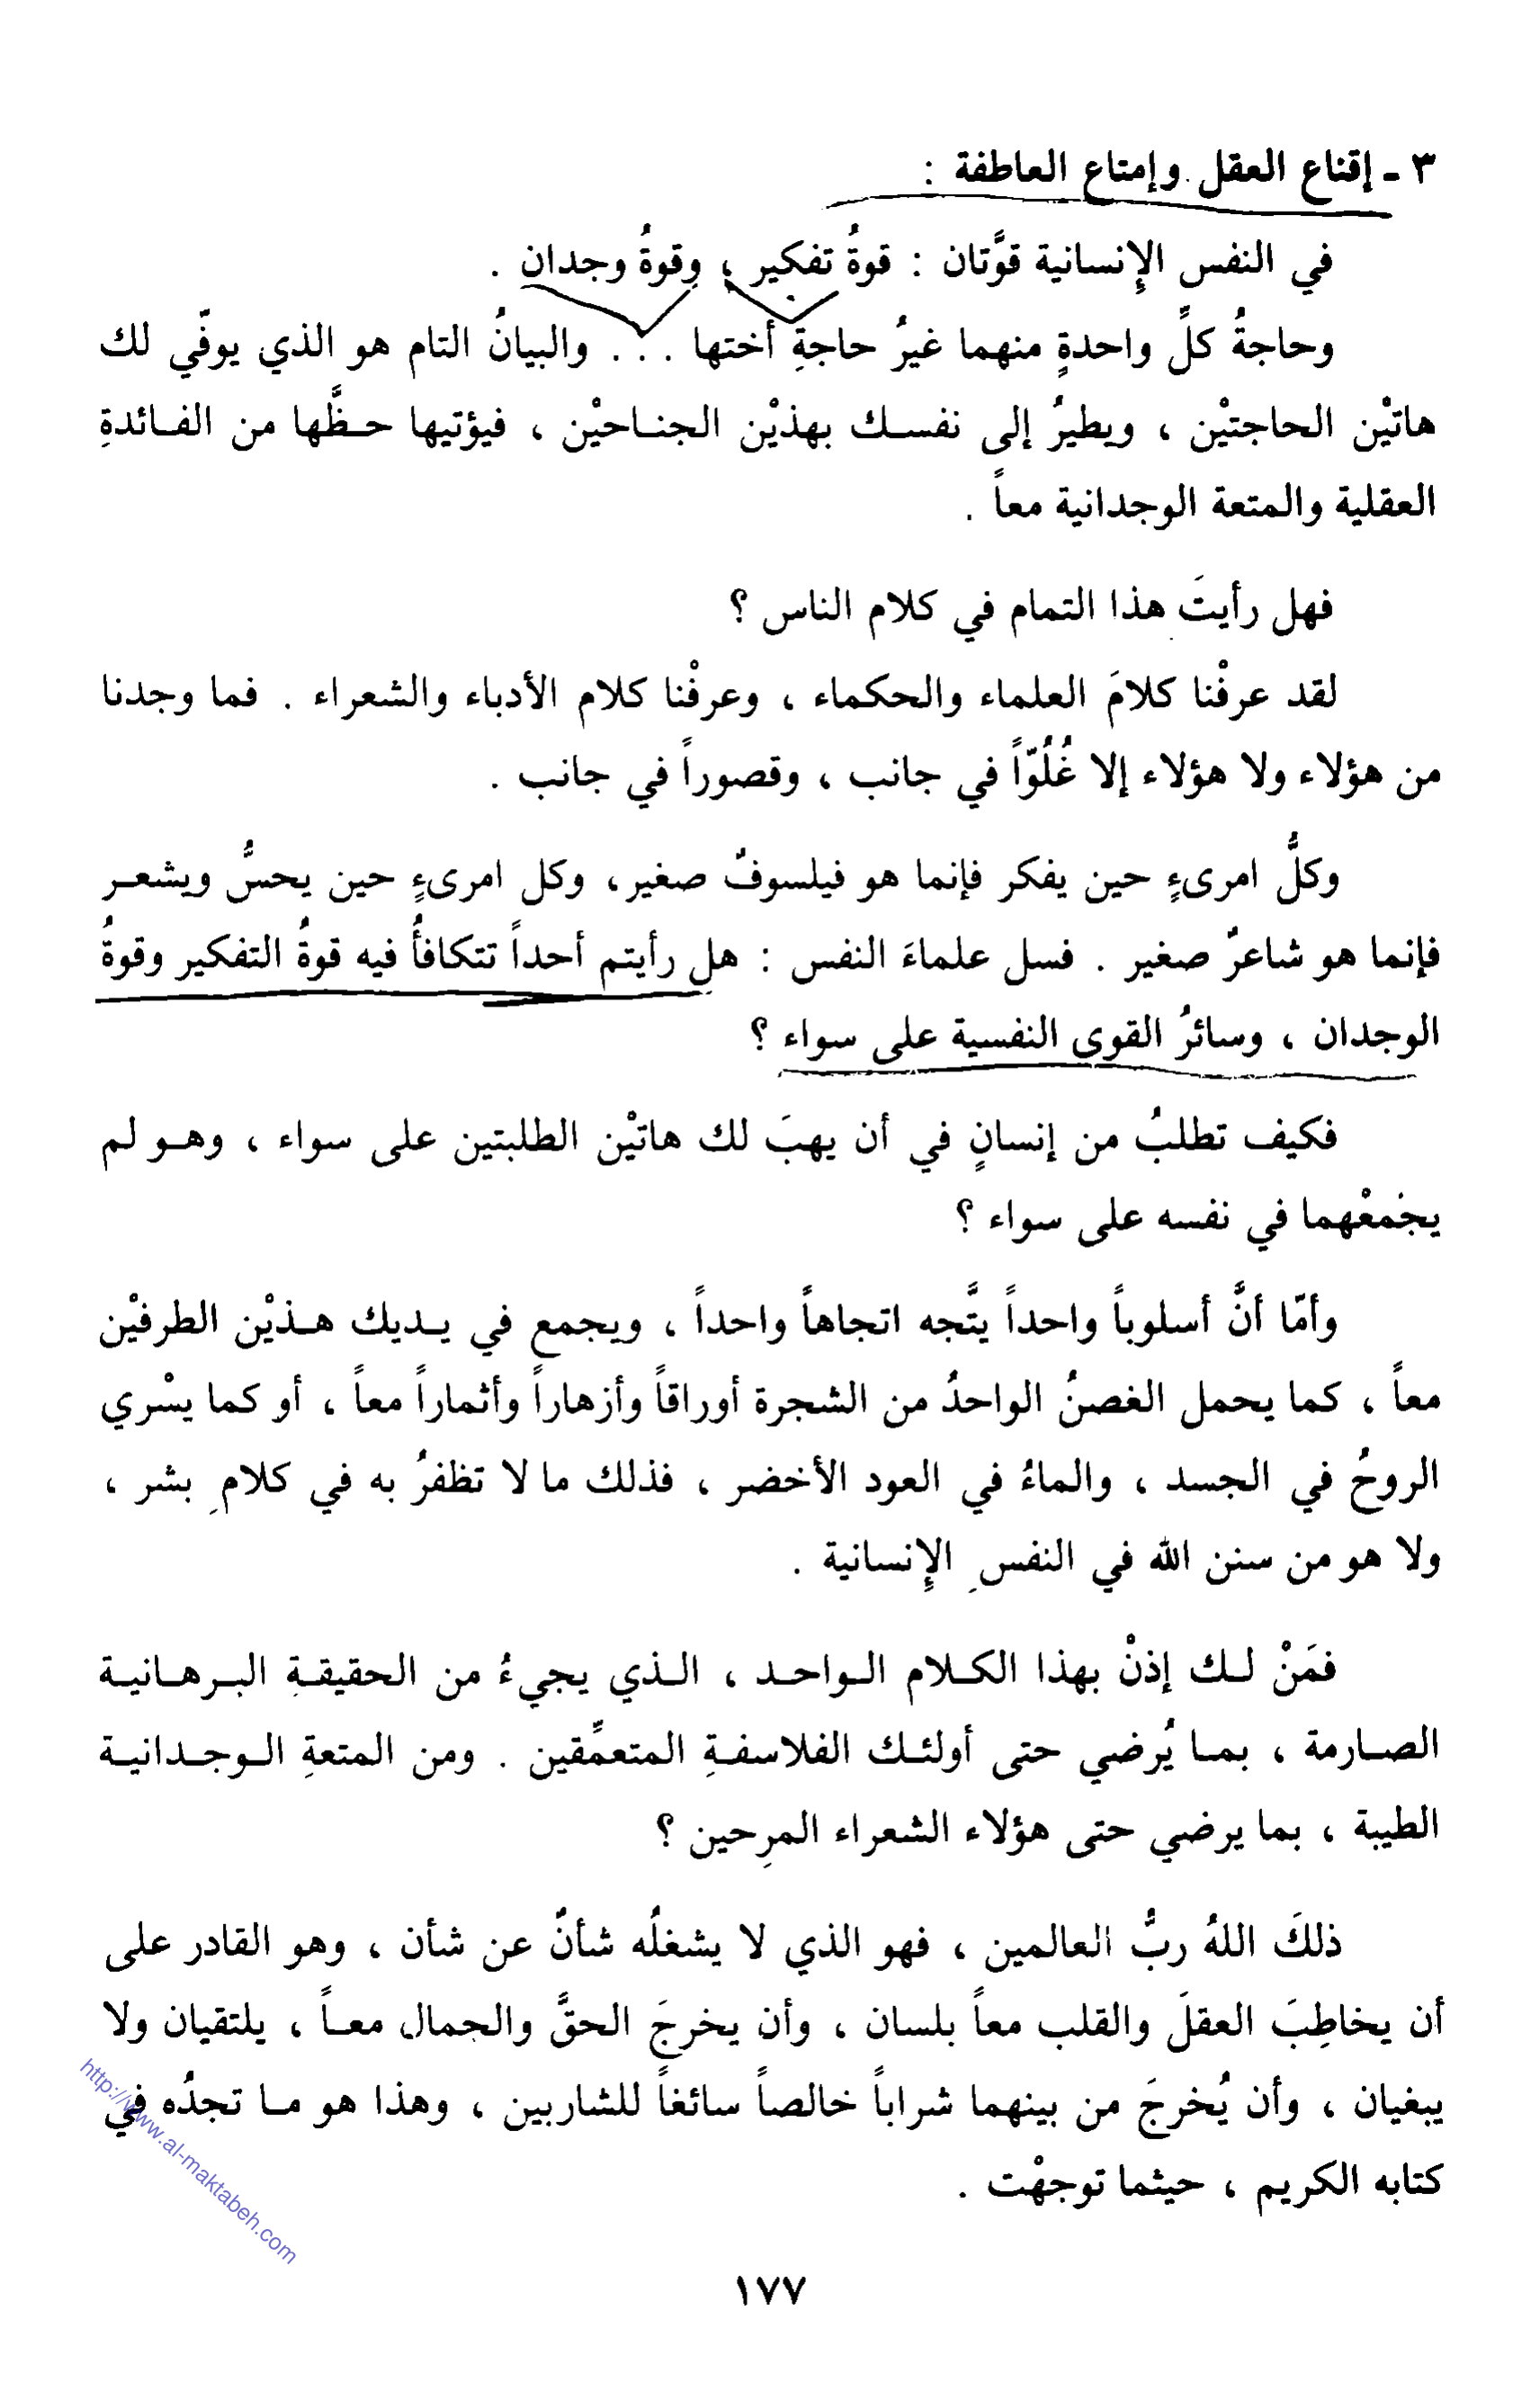 ٣ - إقناع العقل وإمتاع العاطفة :
في النفس الإِنسانية قوَّتان : قوةُ تفكير ، وقوةُ وجدان .
وحاجةُ كلِّ واحدةٍ منهما غيرُ حاجةِ أختها . . . والبيانُ التام هو الذي يوفّي لك
هاتيْن الحاجتيْن ، ويطيرُ إلى نفسك بهذيْن الجناحيْن ، فيؤتيها حظَّها من الفائدةِ
العقلية والمتعة الوجدانية معاً .
فهل رأيتَ هذا التمام في كلام الناس ؟
لقد عرفْنا كلامَ العلماء والحكماء ، وعرفْنا كلام الأدباء والشعراء . فما وجدنا
من هؤلاء ولا هؤلاء إلا غُلُوّاً في جانب ، وقصوراً في جانب .
وكلُّ امرىءٍ حين يفكر فإنما هو فيلسوفٌ صغير، وكل امرىءٍ حين يحسُّ ويشعر
فإنما هو شاعرٌ صغير . فسل علماءَ النفس : هل رأيتم أحداً تتكافأُ فيه قوةُ التفكير وقوةُ
الوجدان ، وسائرُ القوى النفسية على سواء ؟
فكيف تطلبُ من إنسانٍ في أن يهبَ لك هاتيْن الطلبتين على سواء ، وهو لم
يجْمعْهما في نفسه على سواء ؟
وأمّا أنَّ أسلوباً واحداً يتَّجه اتجاهاً واحداً ، ويجمع في يديك هذيْن الطرفيْن
معاً ، كما يحمل الغصنُ الواحدُ من الشجرة أوراقاً وأزهاراً وأثماراً معاً ، أو كما يسْري
الروحُ في الجسد ، والماءُ في العود الأخضر ، فذلك ما لا تظفرُ به في كلامِ بشر ،
ولا هو من سنن الله في النفسِ الإِنسانية .
فمَنْ لك إذنْ بهذا الكلام الواحد ، الذي يجيءُ من الحقيقةِ البرهانية
الصارمة ، بما يُرضي حتى أولئك الفلاسفةِ المتعمِّقين . ومن المتعةِ الوجدانية
الطيبة ، بما يرضي حتى هؤلاء الشعراء المرِحين ؟
ذلكَ اللهُ ربُّ العالمين ، فهو الذي لا يشغلُه شأنٌ عن شأن ، وهو القادر على
أن يخاطِبَ العقلَ والقلب معاً بلسان ، وأن يخرجَ الحقَّ والجمال معاً ، يلتقيان ولا
يبغيان ، وأن يُخرجَ من بينهما شراباً خالصاً سائغاً للشاربين ، وهذا هو ما تجدُه في
كتابه الكريم ، حيثما توجهْت .
http://www.al-maktabeh.com
١٧٧